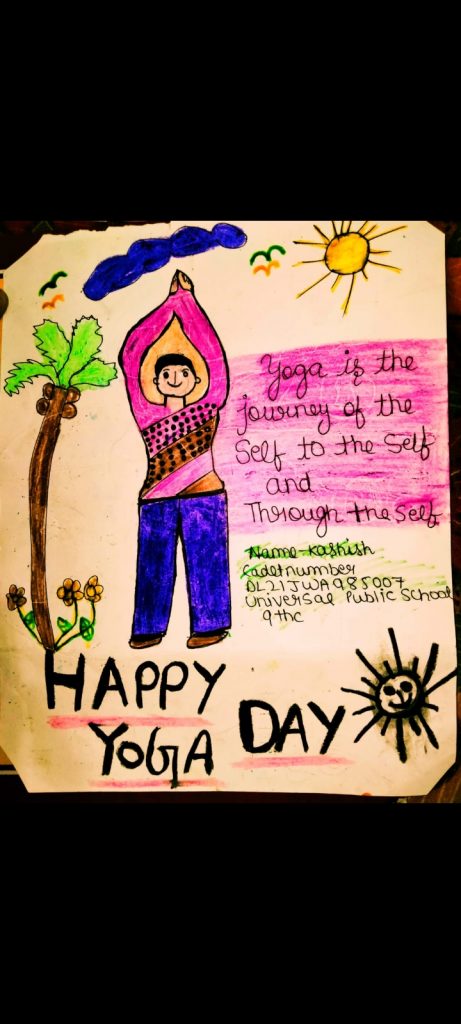 Yoga is the
journey of the
Self to the Self
and
Through the Self
Name-Kashish
Cadet number
DL21JWA985007
Universal Public School
9thc
HAPPY
YOGA DAY